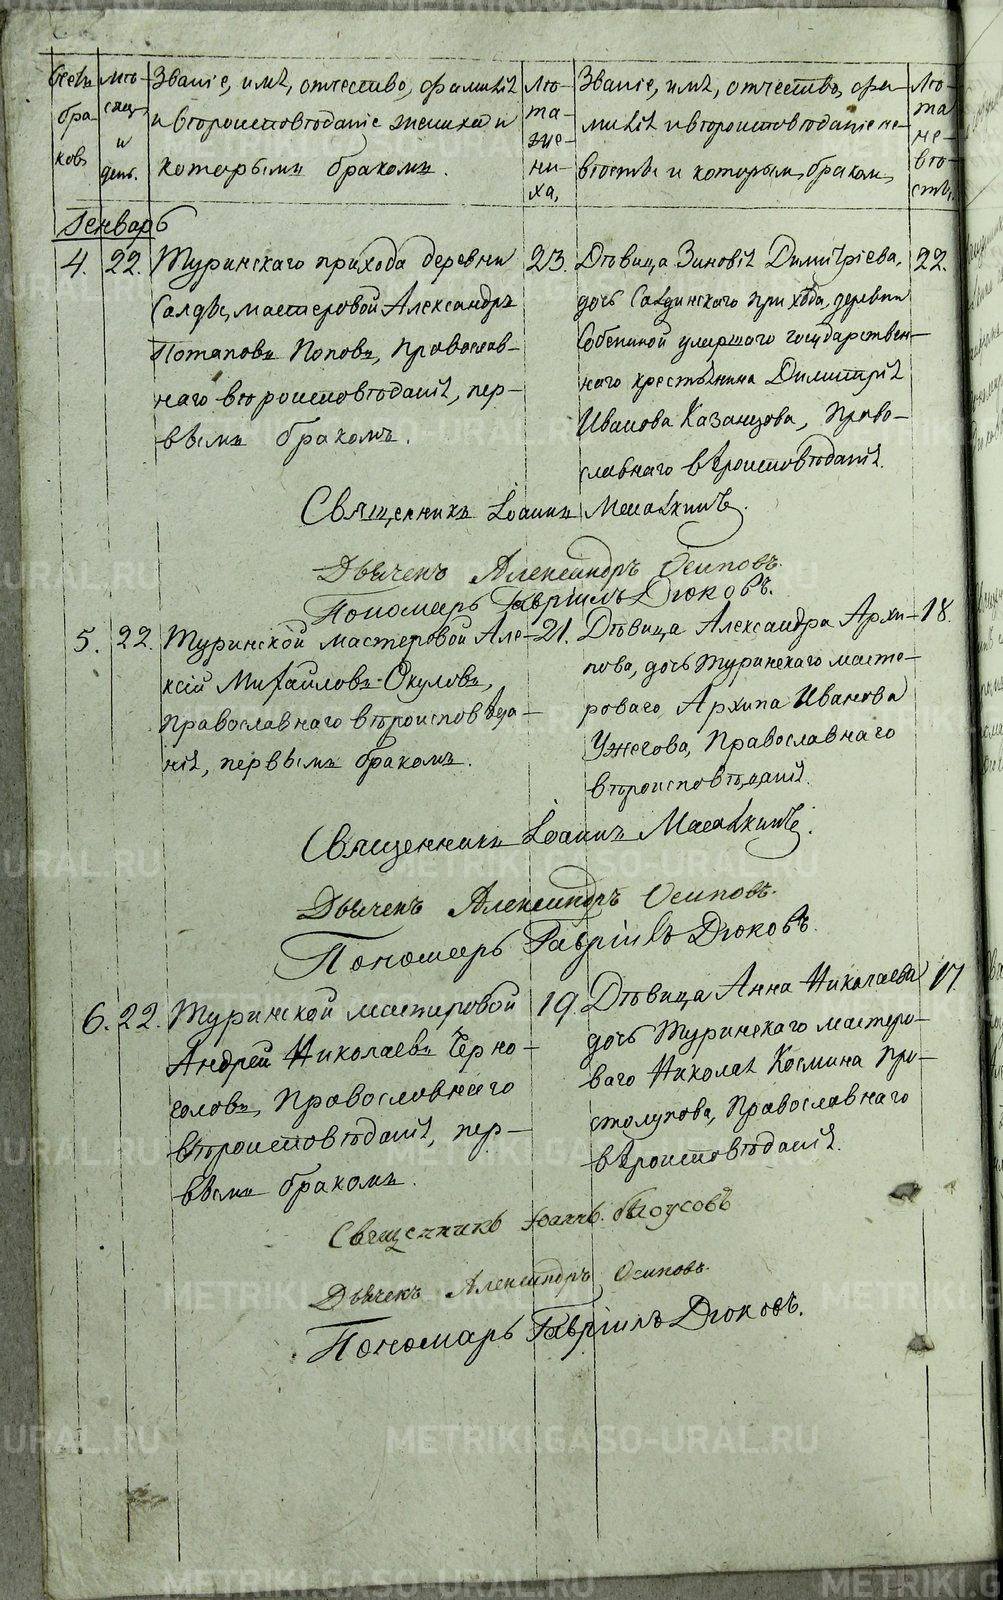 Счетъ браковъ.
Мѣсяцъ и день.
Званіе, имя, отчество, фамилія
и вѣроисповѣданіе жениха и
которымъ бракомъ.
Лѣта жениха,
Званіе, имя, отчество, фа-
милія и вѣроисповѣданіе не-
вѣсты и которымъ бракомъ,
Лѣта невѣсты.
Генварь
4. 22. Туринскаго прихода деревни
Салды, мастеровой Александръ
Потаповъ Поповъ, Православ-
наго вѣроисповѣданія, пер-
вымъ бракомъ.
23.
Дѣвица Зиновія Димитріева,
дочь Салдинскаго прихода, деревни
умершаго государствен-
наго крестьянина Димитрія
Иванова Казанцова, Право-
славнаго вѣроисповѣданія.
22.
Священникъ Іоаннъ
Дьячекъ Александръ Осиповъ.
Пономарь Гавріилъ Дюковъ.
5. 22. Туринской мастеровой Але-
ксій Михайловъ Окуловъ,
Православнаго вѣроисповѣда-
нія, первымъ бракомъ.
21.
Дѣвица Александра Архи-
пова, дочь Туринскаго масте-
роваго Архипа Иванова
Ужегова, Православнаго
вѣроисповѣданія.
18.
Священникъ Іоаннъ
Дьячекъ Александръ Осиповъ.
Пономарь Гавріилъ Дюковъ.
6. 22. Туринской мастеровой
Андрей Николаевъ Черно-
головъ, Православнаго
вѣроисповѣданія, пер-
вымъ бракомъ.
19.
Дѣвица Анна Николаева
дочь Туринскаго мастеро-
ваго Николая Космина Про-
столупова, Православнаго
вѣроисповѣданія.
17.
Священникъ Іоаннъ Бѣлоусовъ
Дьячекъ Александръ Осиповъ.
Пономарь Гавріилъ Дюковъ.
METRIKI.GASO-URAL.RU